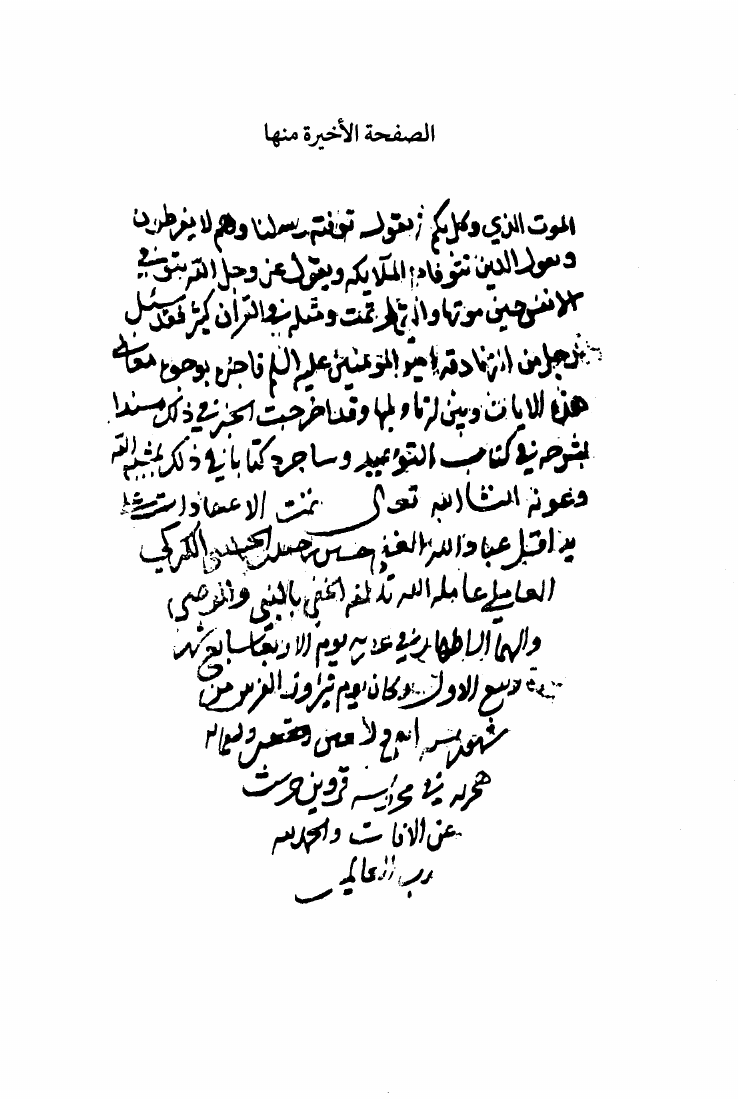 الصفحة الأخيرة منها
الموت الذي وكل بكم ويقول توفته رسلنا وهم لا يفرطون
ويقول الذين تتوفاهم الملايكه ويقول عز وجل الله يتوفى
الانفس حين موتها والتي لم تمت ومثله في القرآن كثير فقد سئل
رجل من الزنادقه امير المؤمنين عليه السلم فاخبره بوجوه معاني
هذه الايات وبين له تاويلها وقد اخرجت الخبر في ذلك مسندا
بشرحه في كتاب التوحيد وساجرد كتابا في ذلك بمشيه الله
وعونه انشاالله تعالى تمت الاعتقادات
يد اقل عباد الله الغني حسين بن الحسيني الكركي
العاملي عامله الله بلطفه الخفي بالنبي والوصي
والهما الاطهار في يوم الاربعا سابع شهر
ربيع الاول وكان يوم نيروز الفرس من
شهور
هجريه في مدرسه قزوين حرست
عن الافات والحمد لله
رب العالمين